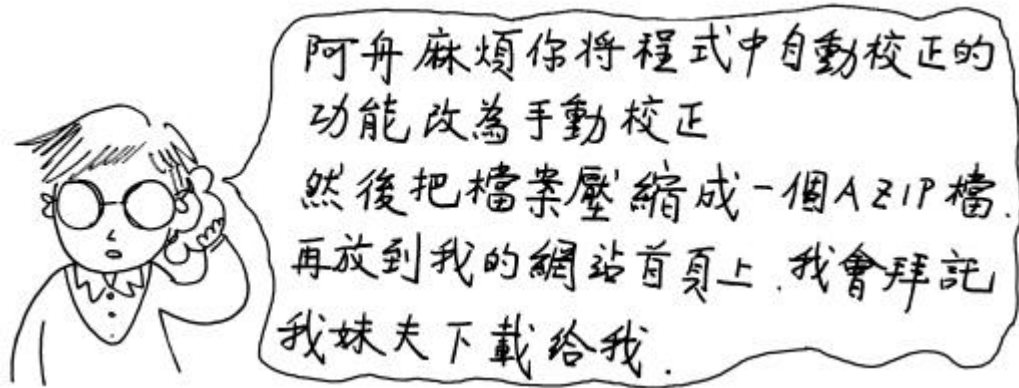 阿舟麻煩你将程式中自動校正的
功能改為手動校正
然後把檔案壓縮成一個AZIP檔.
再放到我的網站首頁上.我會拜託
我妹夫下載給我.